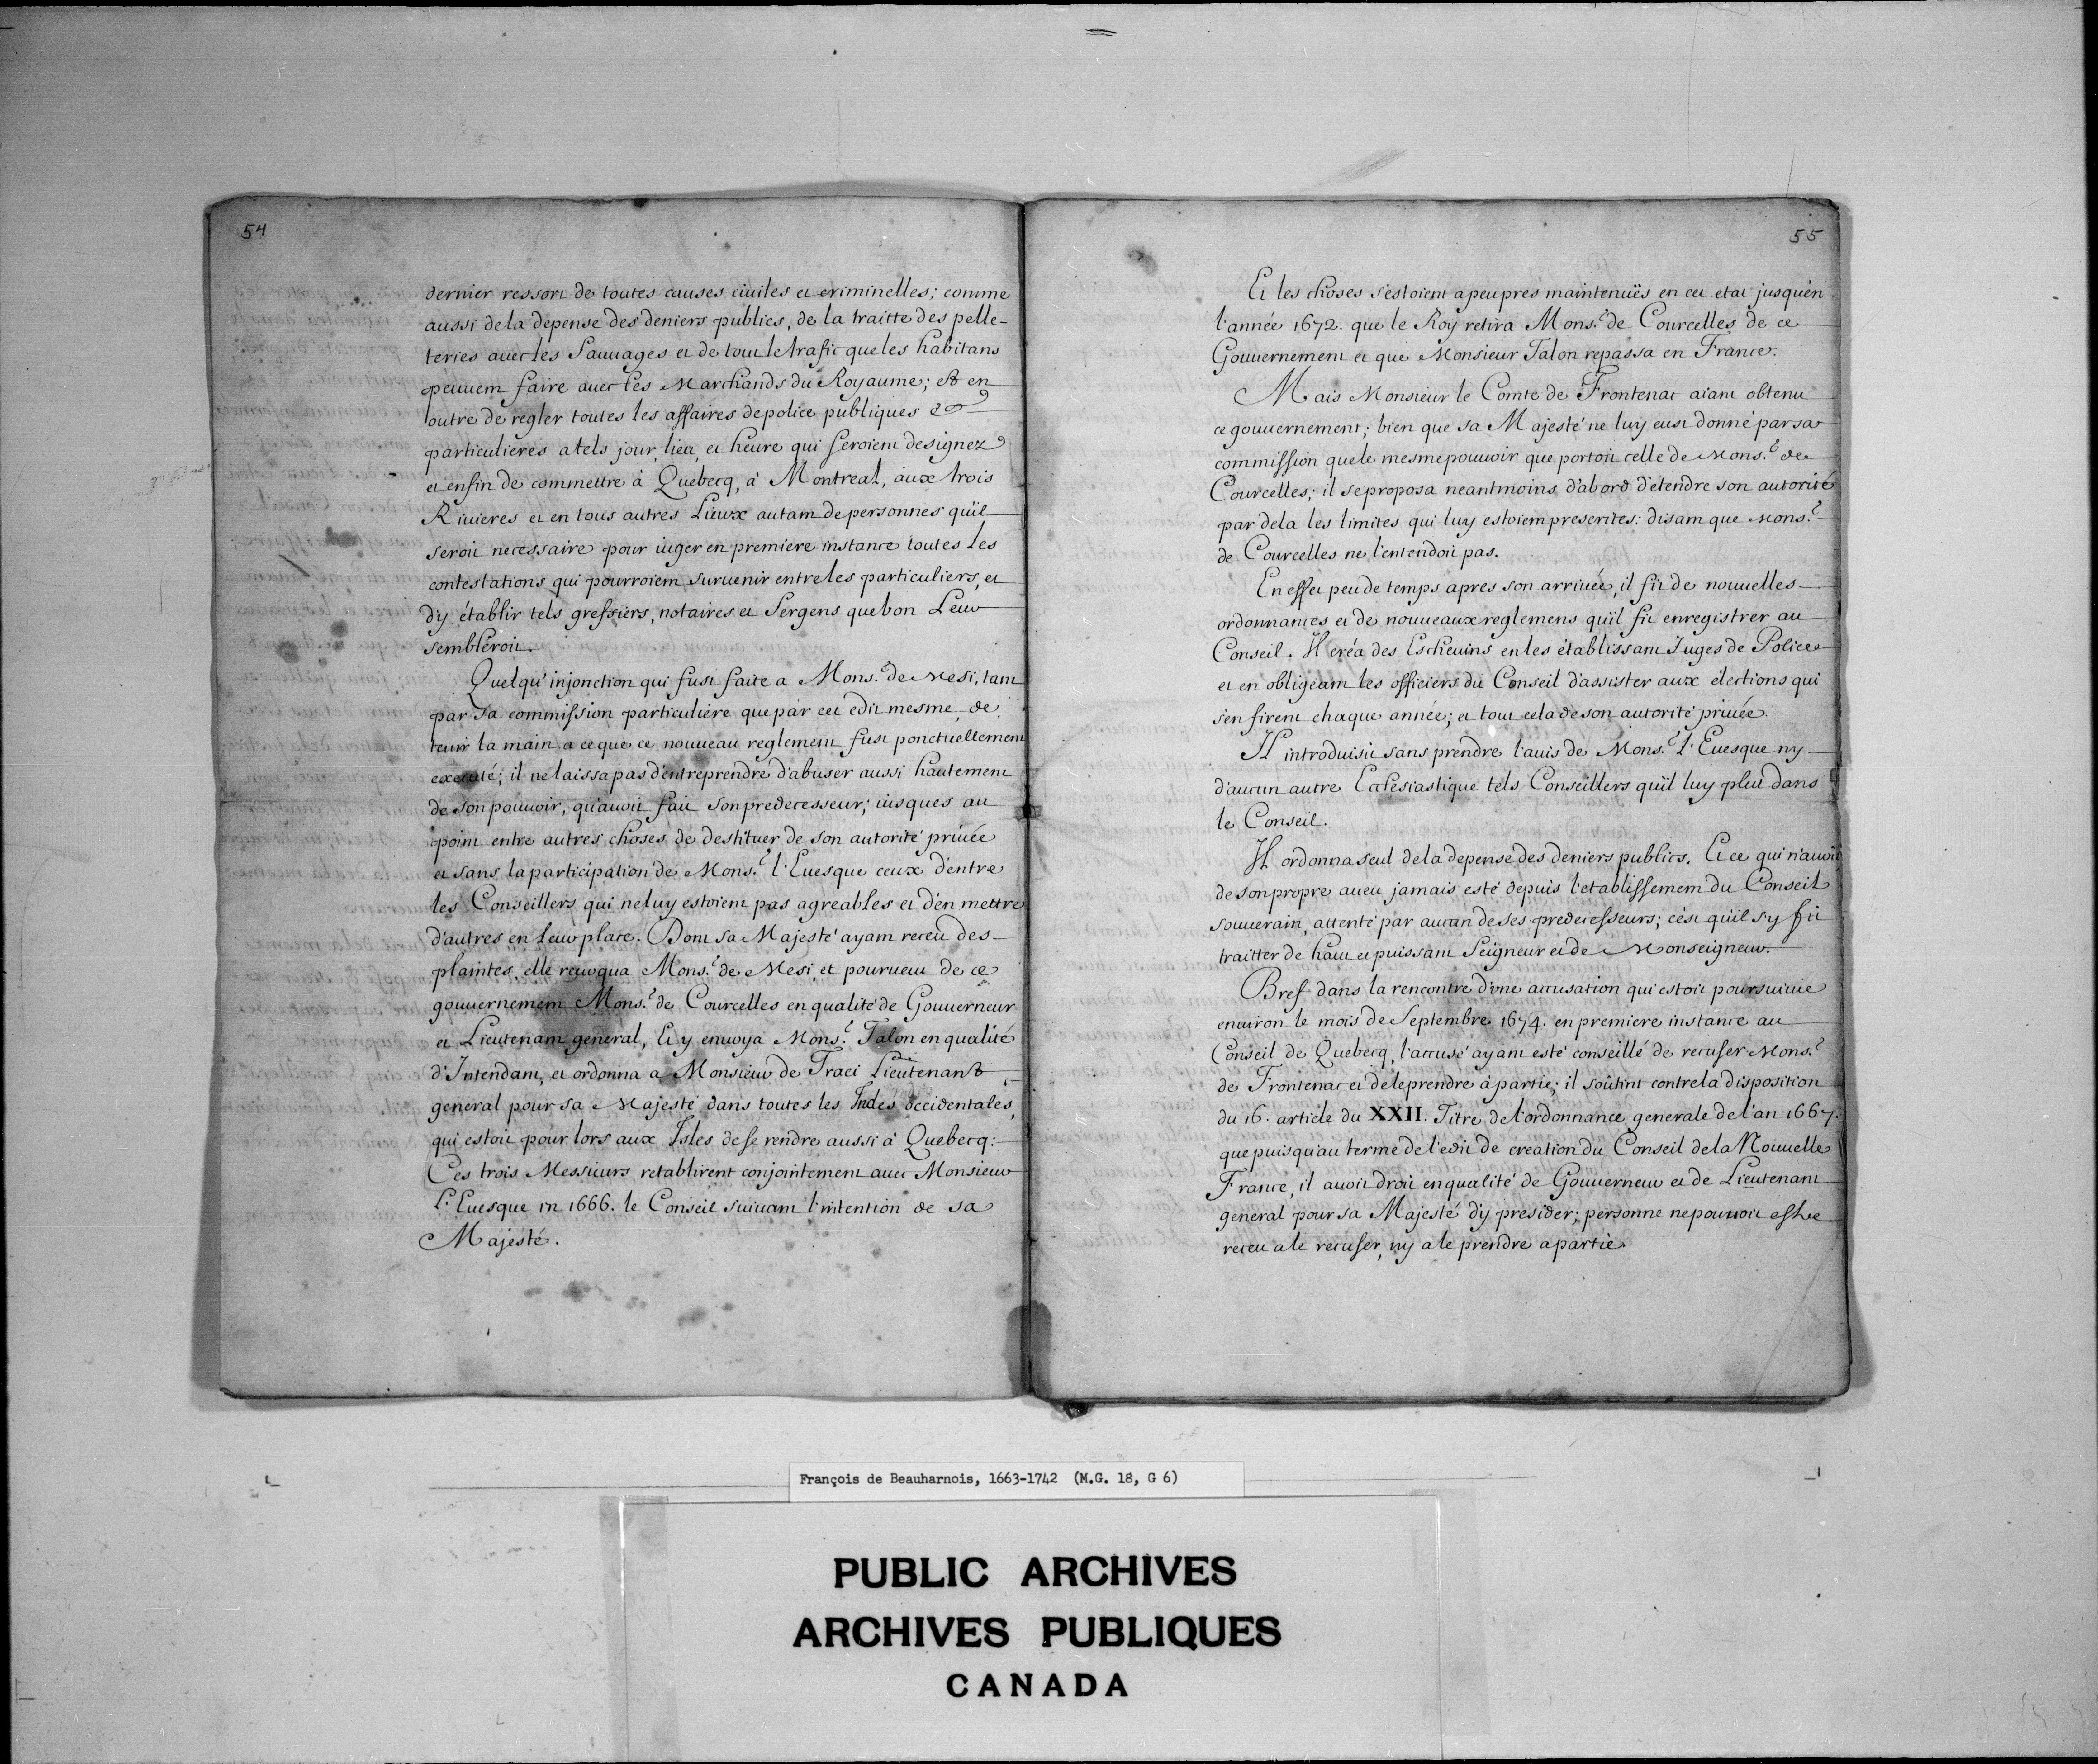 54
dernier ressort de toutes causes ciuiles et criminelles; comme
aussi dela depense des deniers publics, de la traitte des pelle-
teries auec les Sauuages et de tout le trafic que les habitans
peuuent faire auec les Marchands du Royaume; et en
outre de regler toutes les affaires de police publiques et
particulieres a tels jour, lieu, et heure qui seroient designez
et enfin de commettre à Quebecq, à Montreal, aux trois
Riuieres et en tous autres Lieux autant de personnes qu'il
seroit necessaire pour iuger en premiere instance toutes les
contestations qui pourroient suruenir entre les particuliers, et
d'y établir tels greffiers, notaires et Sergens que bon Leur
sembleroit.
Quelqu'injonction qui fust faite a Mons.r de Mesi, tant
par sa commission particuliere que par cet edit mesme, de
tenir la main a ce que ce nouueau reglement fust ponctuellement
executé; il ne laissa pas d'entreprendre d'abuser aussi hautement
de son pouuoir, qu'auoit fait son predecesseur; iusques au
point entre autres choses de destituer de son autorité priuée
et sans la participation de Mons.r l'Euesque ceux d'entre
les Conseillers qui ne luy estoient pas agreables et d'en mettre
d'autres en leur place. Dont sa Majesté ayant receu des
plaintes, elle reuoqua Mons.r de Mesi, et pourueut de ce
gouuernement Mons.r de Courcelles en qualité de Gouuerneur
et Lieutenant general, Et y enuoya Mons.r Talon en qualité
d'Intendant, et ordonna a Monsieur de Traci Lieutenant
general pour sa Majesté dans toutes les Indes occidentales,
qui estoit pour lors aux Isles de se rendre aussi à Quebecq:
Ces trois Messieurs retablirent conjointement auec Monsieur
L'Euesque in 1666. le Conseil suiuant l'intention de sa
Majesté.
55
Et les choses s'estoient apeupres maintenuës en cet etat jusqu'en
l'année 1672. que le Roy retira Mons.r de Courcelles de ce
Gouuernement et que Monsieur Talon repassa en France.
Mais Monsieur le Comte de Frontenac aiant obtenu
ce gouuernement; bien que sa Majesté ne luy eust donné par sa
commission que le mesme pouuoir que portoit celle de Mons.r de
Courcelles; il se proposa neantmoins d'abord d'étendre son autorité
par dela les limites qui luy estoient prescrites: disant que Mons.r
de Courcelles ne l'entendoit pas.
En effet peu de temps apres son arriuée, il fit de nouuelles
ordonnances et de nouueaux reglemens qu'il fit enregistrer au
Conseil. Il créa des Escheuins en les établissant Iuges de Police
et en obligeant les officiers du Conseil d'assister aux élections qui
s'en firent chaque année; et tout cela de son autorité priuée.
Il introduisit sans prendre l'auis de Mons.r l'Euesque ny
d'aucun autre Ecclesiastique tels Conseillers qu'il luy plut dans
le Conseil.
Il ordonna seul dela depense des deniers publics. Et ce qui n'auoit
de son propre aueu jamais esté depuis l'etablissement du Conseil
souuerain, attenté par aucun de ses predecesseurs; c'est qu'il s'y fit
traitter de haut et puissant Seigneur et de Monseigneur.
Bref dans la rencontre d'une accusation qui estoit poursuiuie
enuiron le mois de Septembre 1674. en premiere instance au
Conseil de Quebecq, l'accusé ayant esté conseillé de recuser Mons.r
de Frontenac et de le prendre à partie; il soûtint contre la disposition
du 16. article du XXII. Titre de l'ordonnance generale de l'an 1667.
que puisqu'au terme de l'edit de creation du Conseil dela Nouuelle
France, il auoit droit en qualité de Gouuerneur et de Lieutenant
general pour sa Majesté d'y presider; personne ne pouuoit estre
receu a le recuser, ny a le prendre a partie.
François de Beauharnois, 1663-1742 (M.G. 18, G 6)
PUBLIC ARCHIVES
ARCHIVES PUBLIQUES
CANADA